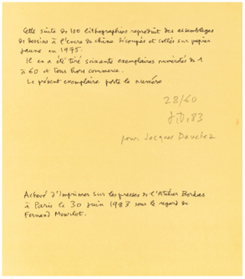 Cette suite de 100 lithographies reproduit des assemblages
de dessins à l'encre de chine découpés et collés sur papier
jaune en 1975.
Il en a été tiré soixante exemplaires numérotés de 1
à 60 et tous hors commerce.
Le présent exemplaire porte le numéro
28/60
83
pour Jacques
Achevé d'Imprimer sur les presses de l'Atelier Bordas
à Paris le 30 juin 1983 sous le regard de
Fernand Mourlot.